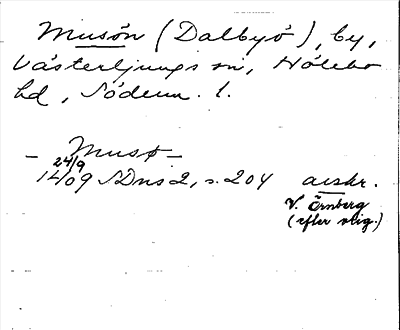 Musön (Dalbyö), by,
Västerljungs sn, Hölebo
hd, Söderm. l.
— Musø —
24/9
1409 SDns 2, s. 204 avskr.
V. Örnberg
(efter orig.)